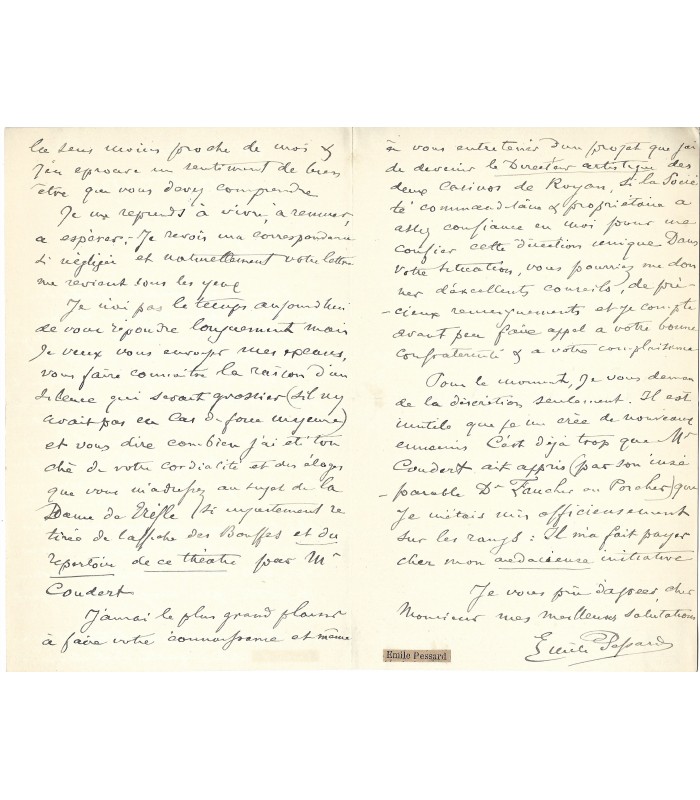 la sens moins proche de moi &
j'en eprouve un sentiment de bien
être que vous devez comprendre
Je me reprends à vivre, à remuer,
a espérer. – Je revois ma correspondance
si négligée et naturellement votre lettre
me revient sous les yeux
Je n'ai pas le temps aujourd'hui
de vous répondre longuement mais
Je veux vous envoyer mes excuses,
vous faire connaître la raison d'un
silence qui serait grossier (s'il n'y
avait pas eu cas de force majeure)
et vous dire combien j'ai été tou
ché de votre cordialité et des éloges
que vous m'adressez au sujet de la
Dame de Trèfle (si injustement re
tirée de l'affiche des Bouffes et du
repertoire de ce théatre par Mr
Coudert
J'aurai le plus grand plaisir
à faire votre connaissance et même
à vous entretenir d'un projet que j'ai
de devenir le Directeur artistique des
deux Casinos de Royan, si la Socié
té commanditaire & propriétaire a
assez confiance en moi pour me
confier cette direction unique Dans
votre situation, vous pourriez me don
ner d'excellents conseils, de pré
-cieux renseignements et je compte
avant peu faire appel a votre bonne
confraternité & a votre complaisance
Pour le moment, Je vous deman
de la discrétion seulement. Il est
inutile que je me crée de nouveaux
ennemis C'est déjà trop que Mr
Coudert ait appris (par son insé
-parable Dr Faucher ou Porcher) que
Je m'étais mis officieusement
sur les rangs : Il m'a fait payer
cher mon audacieuse initiative
Je vous prie d'agréer, cher
Monsieur mes meilleures salutations
Emile Pessard
Emile Pessard